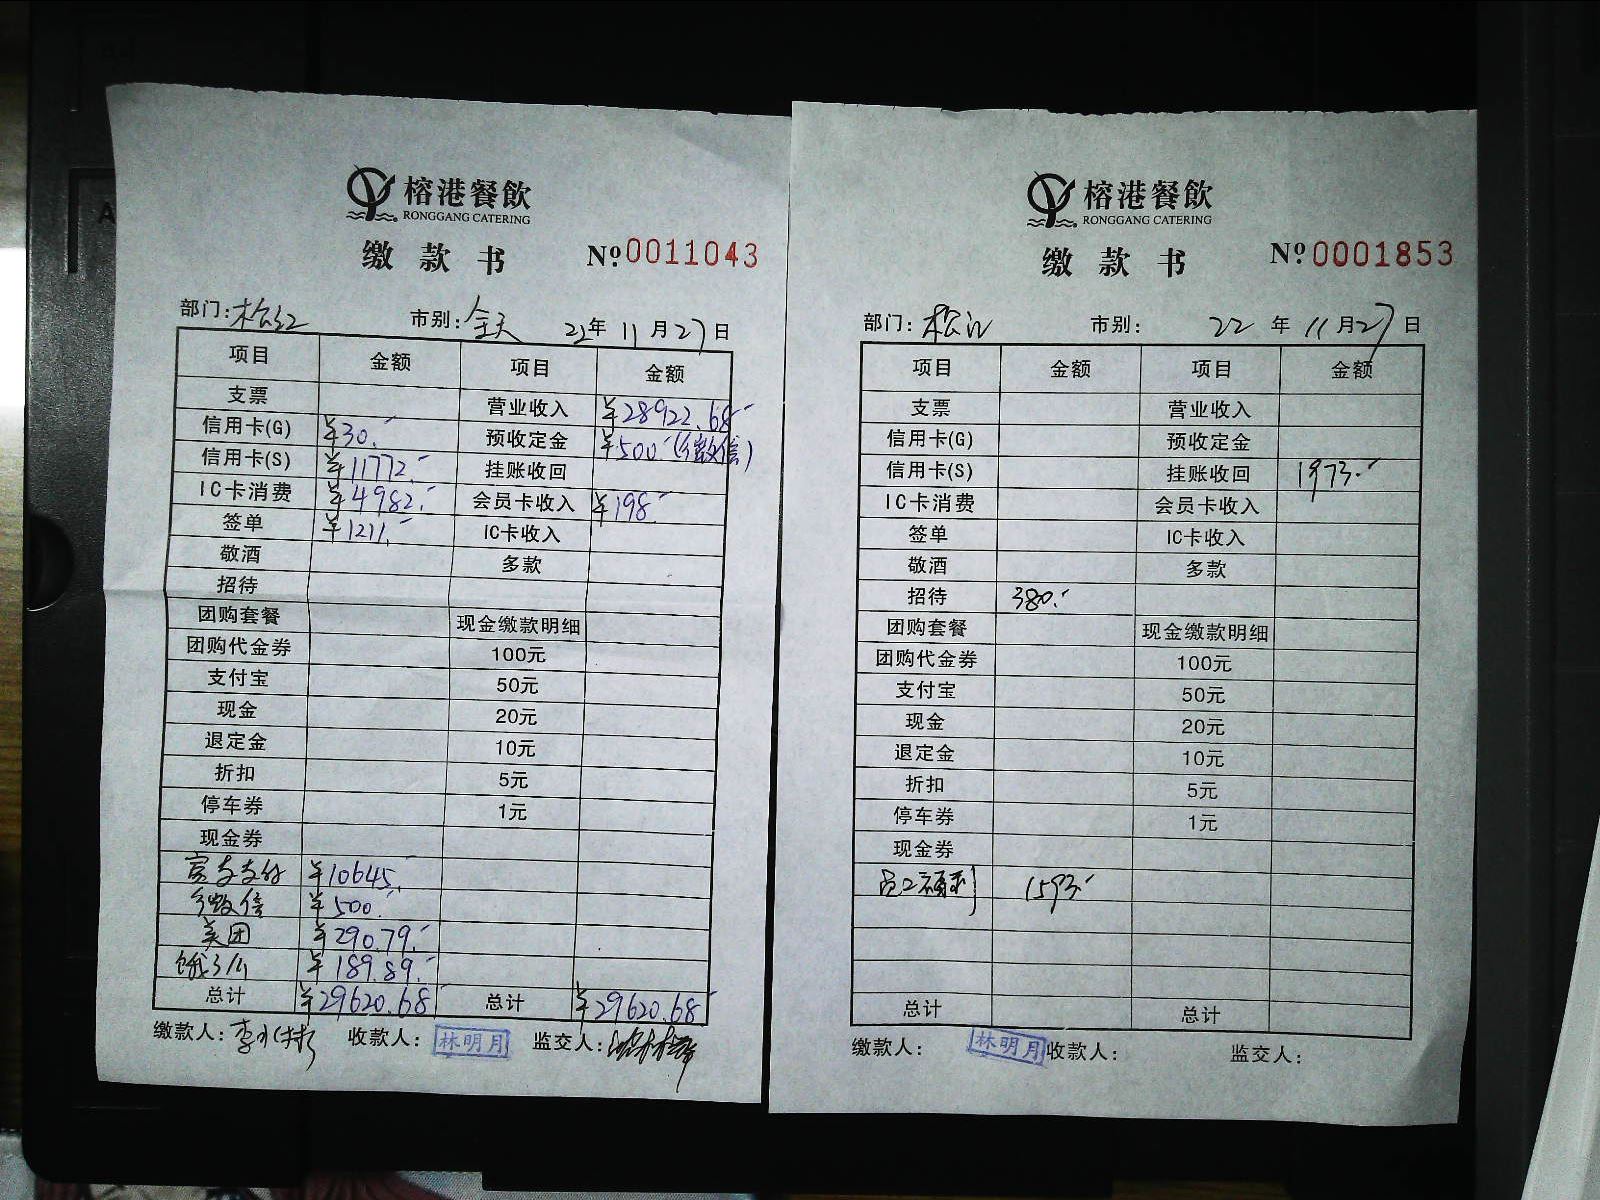 榕港餐飲
RONGGANG CATERING
缴款书 №0011043
部门: 市别:全天 22年11月27日
项目 金额 项目 金额
支票 营业收入 ¥28922.68
信用卡(G) ¥30.- 预收定金 ¥500.-(微信)
信用卡(S) ¥11772.- 挂账收回
IC卡消费 ¥4982.- 会员卡收入 ¥198.-
签单 ¥1211.- IC卡收入
敬酒 多款
招待
团购套餐 现金缴款明细
团购代金券 100元
支付宝 50元
现金 20元
退定金 10元
折扣 5元
停车券 1元
现金券
支付 ¥10645.-
微信 ¥500.-
美团 ¥290.79.-
饿了么 ¥189.89.-
总计 ¥29620.68 总计 ¥29620.68
缴款人: 收款人:林明月 监交人:
榕港餐飲
RONGGANG CATERING
缴款书 №0001853
部门: 市别: 22年11月27日
项目 金额 项目 金额
支票 营业收入
信用卡(G) 预收定金
信用卡(S) 挂账收回 1973.-
IC卡消费 会员卡收入
签单 IC卡收入
敬酒 多款
招待 380.-
团购套餐 现金缴款明细
团购代金券 100元
支付宝 50元
现金 20元
退定金 10元
折扣 5元
停车券 1元
现金券
员工福利 1593.-
总计 总计
缴款人: 林明月 收款人: 监交人: